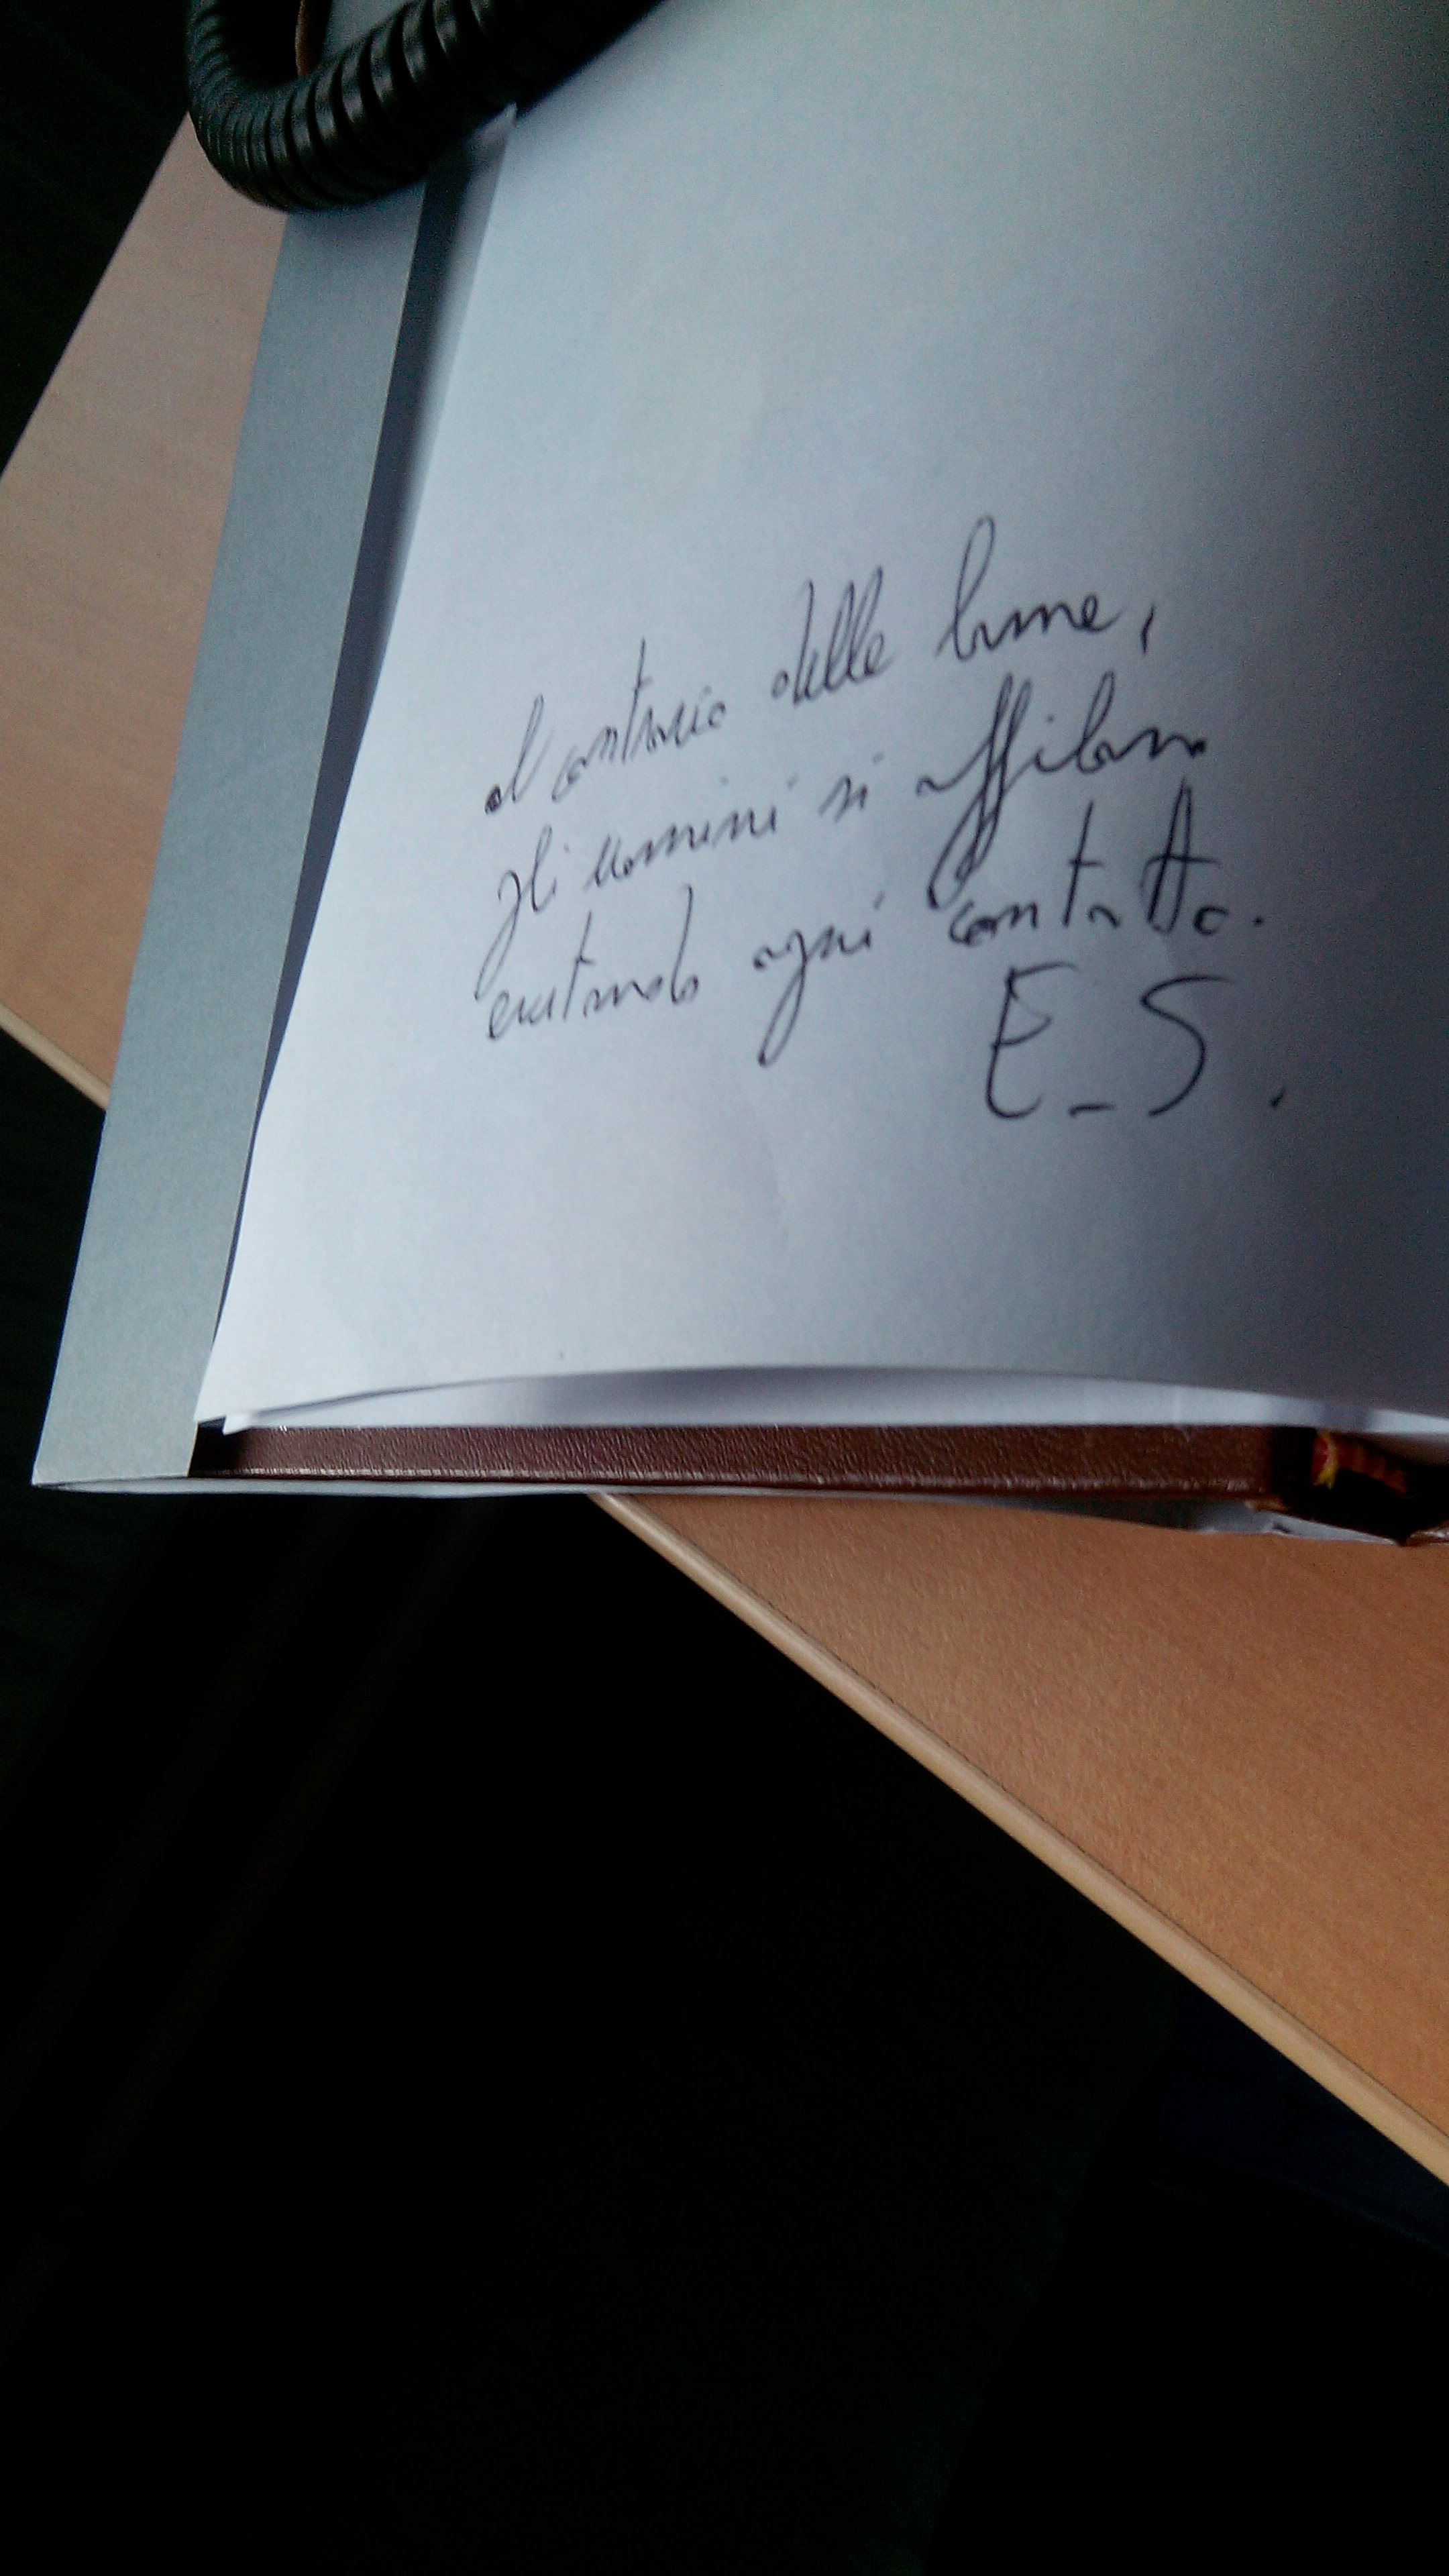 al contrario delle lame,
gli uomini si affilano
evitando ogni contatto.
E_S.